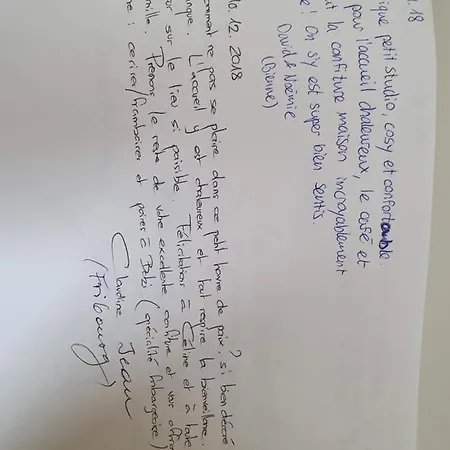 1.18
ique petit studio, cosy et confortable.
pour l'accueil chaleureux, le café et
t la confiture maison incroyablement
e! On s'y est super bien sentis.
David & Noémie
(Bienne)
10.12.2018
omment ne pas se plaire dans ce petit havre de paix? si bien décoré
nque. L'accueil y est chaleureux et tout respire la bienveillance.
sur le lieu si paisible. Félicitations à Céline et à
mille. Prenons le reste de votre excellente confiture et
: cerises/framboises et poires à Botzi (spécialité fribourgeoise)
Claudine Jean
(Fribourg)